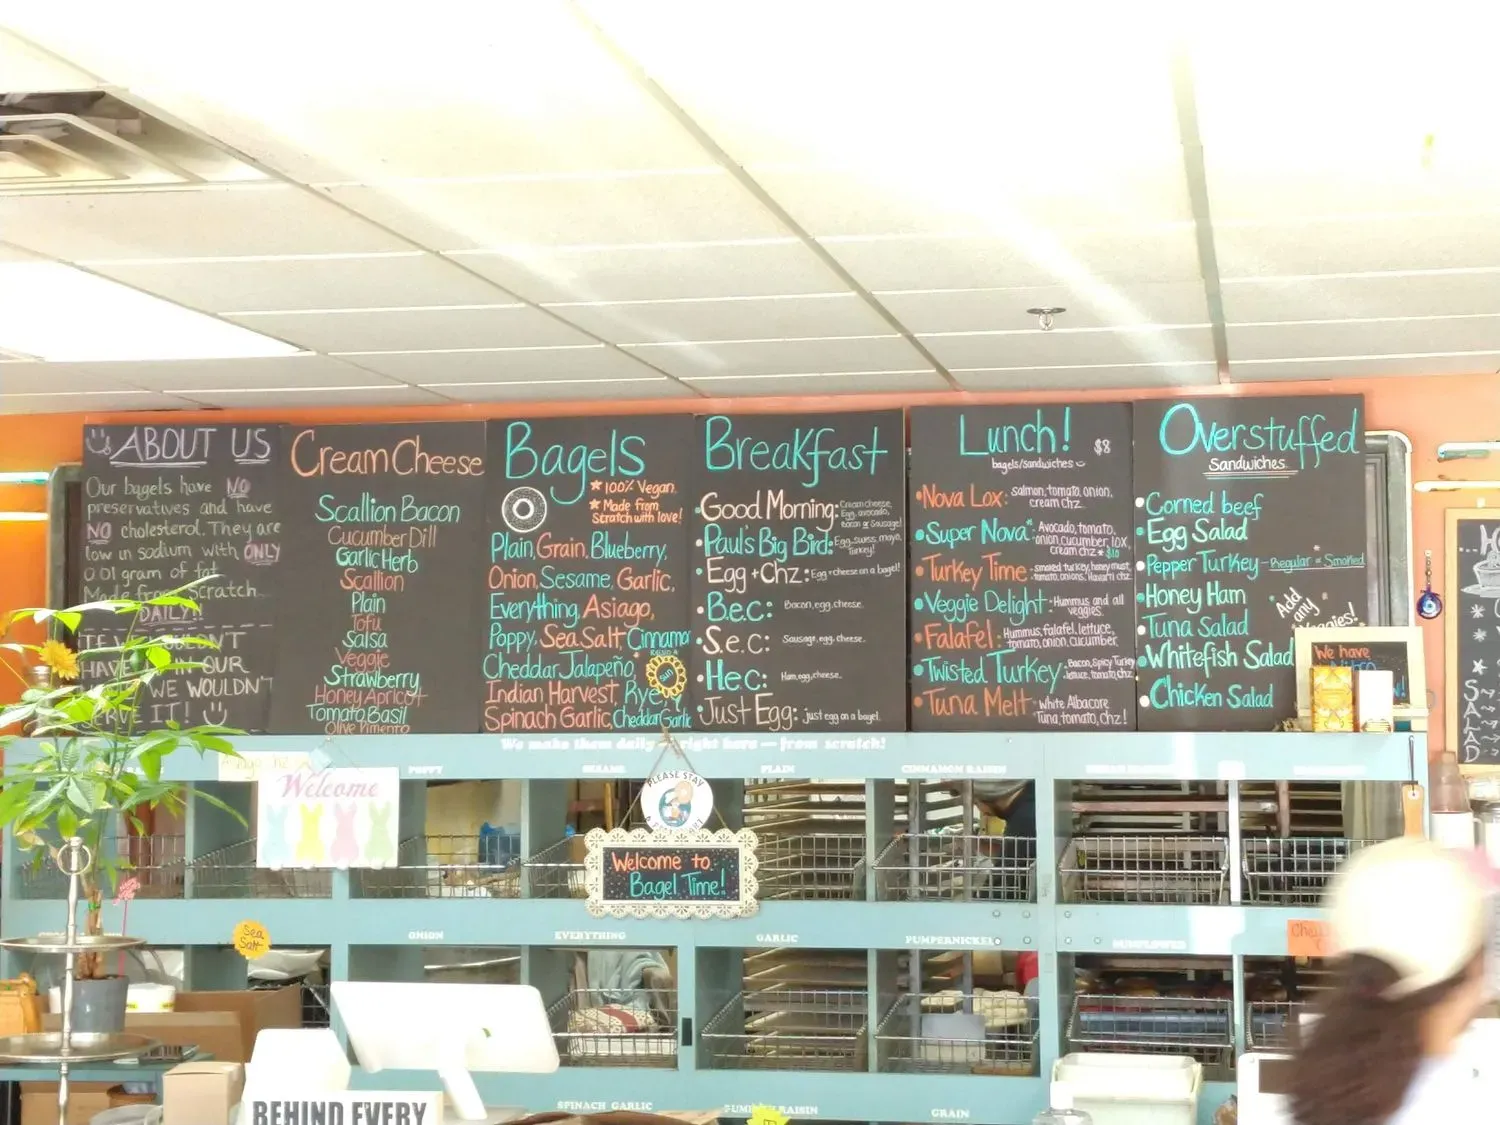 ABOUT US
Our bagels have NO
preservatives and have
NO cholesterol. They are
low in sodium with ONLY
0.01 gram of fat
Made from Scratch
DAILY!!
HAVE IN OUR
WE WOULDN'T
IT!
Cream Cheese
Scallion Bacon
Cucumber Dill
Garlic Herb
Scallion
Plain
Tofu
Salsa
Veggie
Strawberry
Honey Apricot
Tomato Basil
Olive Pimento
Bagels
100% Vegan.
Made from
Scratch with love!
Plain, Grain, Blueberry,
Onion, Sesame, Garlic,
Everything, Asiago,
Poppy, Sea Salt, Cinnamon
Cheddar Jalapeño
Indian Harvest, Rye
Spinach Garlic, Cheddar Garlic
Breakfast
Good Morning: Cream cheese,
Egg, avocado,
bacon or Sausage!
Paul's Big Bird: Egg, swiss, mayo,
Turkey!
Egg + Chz: Egg + cheese on a bagel!
B.e.c: Bacon, egg, cheese.
S.e.c: Sausage, egg, cheese.
H.e.c: Ham, egg, cheese.
Just Egg: just egg on a bagel.
Lunch! $8
bagels/sandwiches
Nova Lox: salmon, tomato, onion,
cream chz.
Super Nova*: Avocado, tomato,
onion, cucumber, lox,
cream chz * $10
Turkey Time: smoked turkey, honey must,
tomato, onions, Havarti chz.
Veggie Delight: Hummus and all
veggies.
Falafel: Hummus, falafel, lettuce,
tomato, onion, cucumber.
Twisted Turkey: Bacon, Spicy Turkey
lettuce, tomato, chz.
Tuna Melt: white Albacore
Tuna, tomato, chz!
Overstuffed
Sandwiches
Corned beef
Egg Salad
Pepper Turkey - Regular = Smoked
Honey Ham
Tuna Salad
Whitefish Salad
Chicken Salad
Add
any
Veggies!
We have
Nitro
SALAD
We make them daily - right here - from scratch!
POPPY
SESAME
PLAIN
CINNAMON RAISIN
Welcome
PLEASE STAY
Welcome to
Bagel Time!
Sea
Salt
ONION
EVERYTHING
GARLIC
PUMPERNICKEL
SUNFLOWER
BEHIND EVERY
SPINACH GARLIC
RAISIN
GRAIN